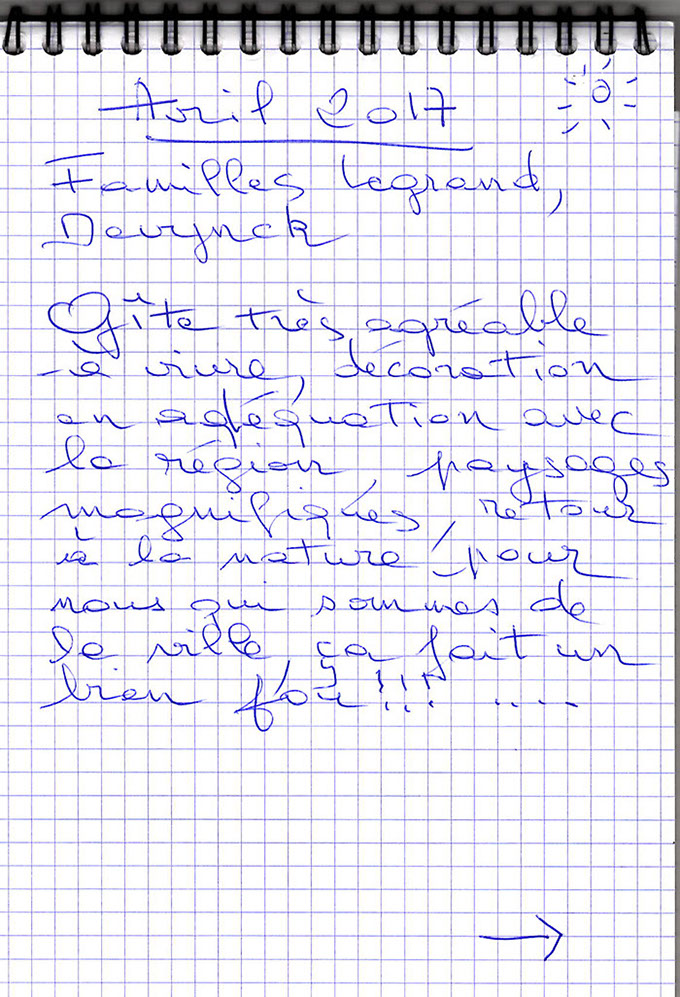 Avril 2017
Familles Legrand,
Devrynck
Gîte très agréable
à vivre, décoration
en adéquation avec
la région, paysages
magnifiques, retour
à la nature, pour
nous qui sommes de
la ville, ça fait un
bien fou!!! ....